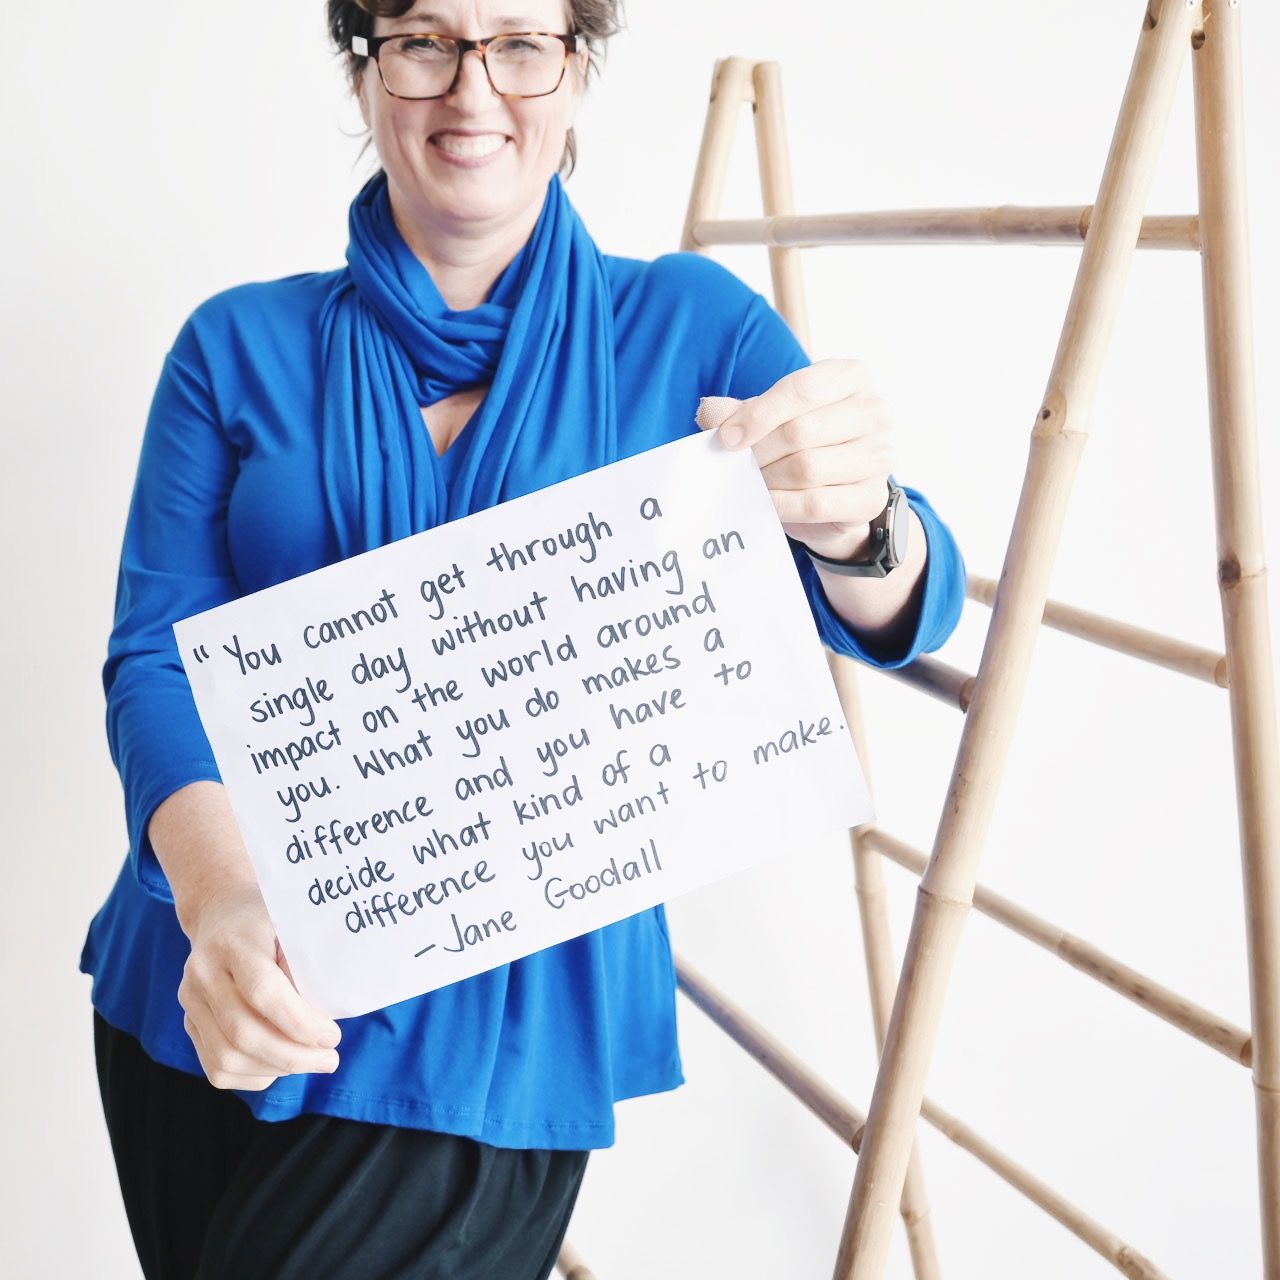 "You cannot get through a
single day without having an
impact on the world around
you. What you do makes a
difference and you have to
decide what kind of a
difference you want to make.
-Jane Goodall